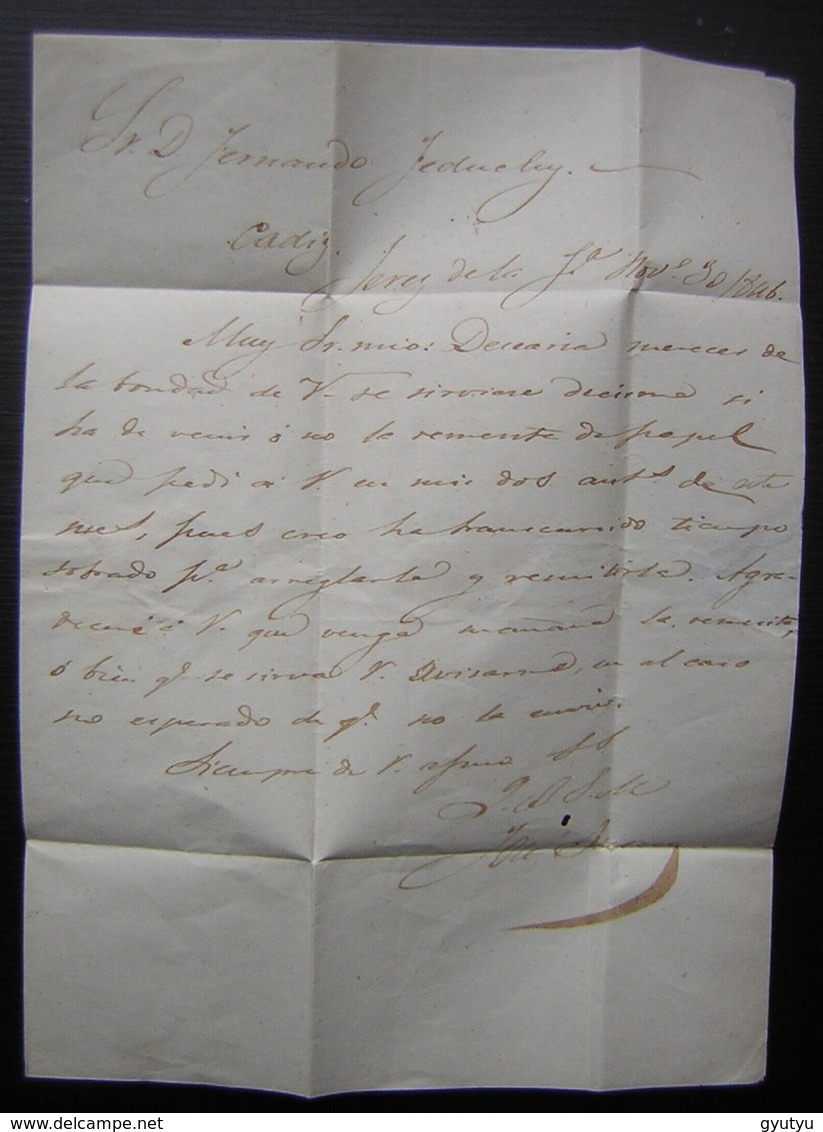 Sr. D. Fernando Feduchy.
Cadiz.
Jerez de la Fª Novº 30/846.
Muy Sr. mio: Desearia merecer de
la bondad de V. se sirviese decirme si
ha de venir ó no la remesita de papel
que pedi á V. en mis dos antˢ de este
mes, pues creo ha transcurrido tiempo
sobrado pª arreglarla y remitirla. Agra-
deceré á V. que venga mañana la remesita,
ó bien qᵉ se sirva V. avisarme, en el caso
no esperado de qᵉ no la envie.
Siempre de V. afmo SS
Q. B. S. M
José
www.delcampe.net
gyutyu